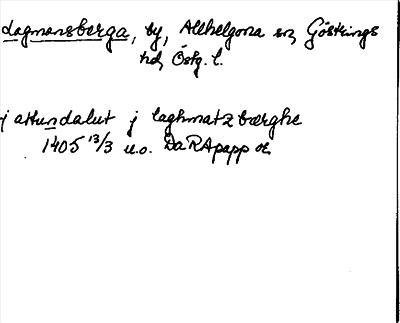 Lagmansberga, by, Allhelgona sn, Göstrings
hd, Östg. l.
j attundalut j laghmatz bærghe
1405 13/3 u.o. DaRApapp or